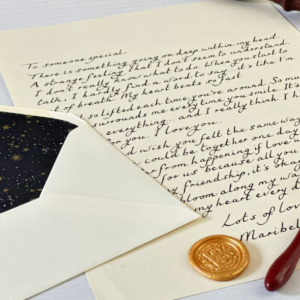 To someone special,
There is something going on deep within my heart
A strange feeling that I don't seem to understand
I don't really know what to do. When you start to
talk, I hardly find a word to say. It's like I'm
out of breath. My heart beats so fast
so lifted each time you're around. Some
surrounds me every time you smile. It's
everything... and I really think I h
you. I love you.
d wish you felt the same way
could be together one day
from happening if love w
for us because all you
friendship, it's oka
bloom along my wa
my heart every d
Lots of lov
Maribel